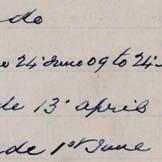 do
24 June 09 to 24
de 13 april
de 1st June